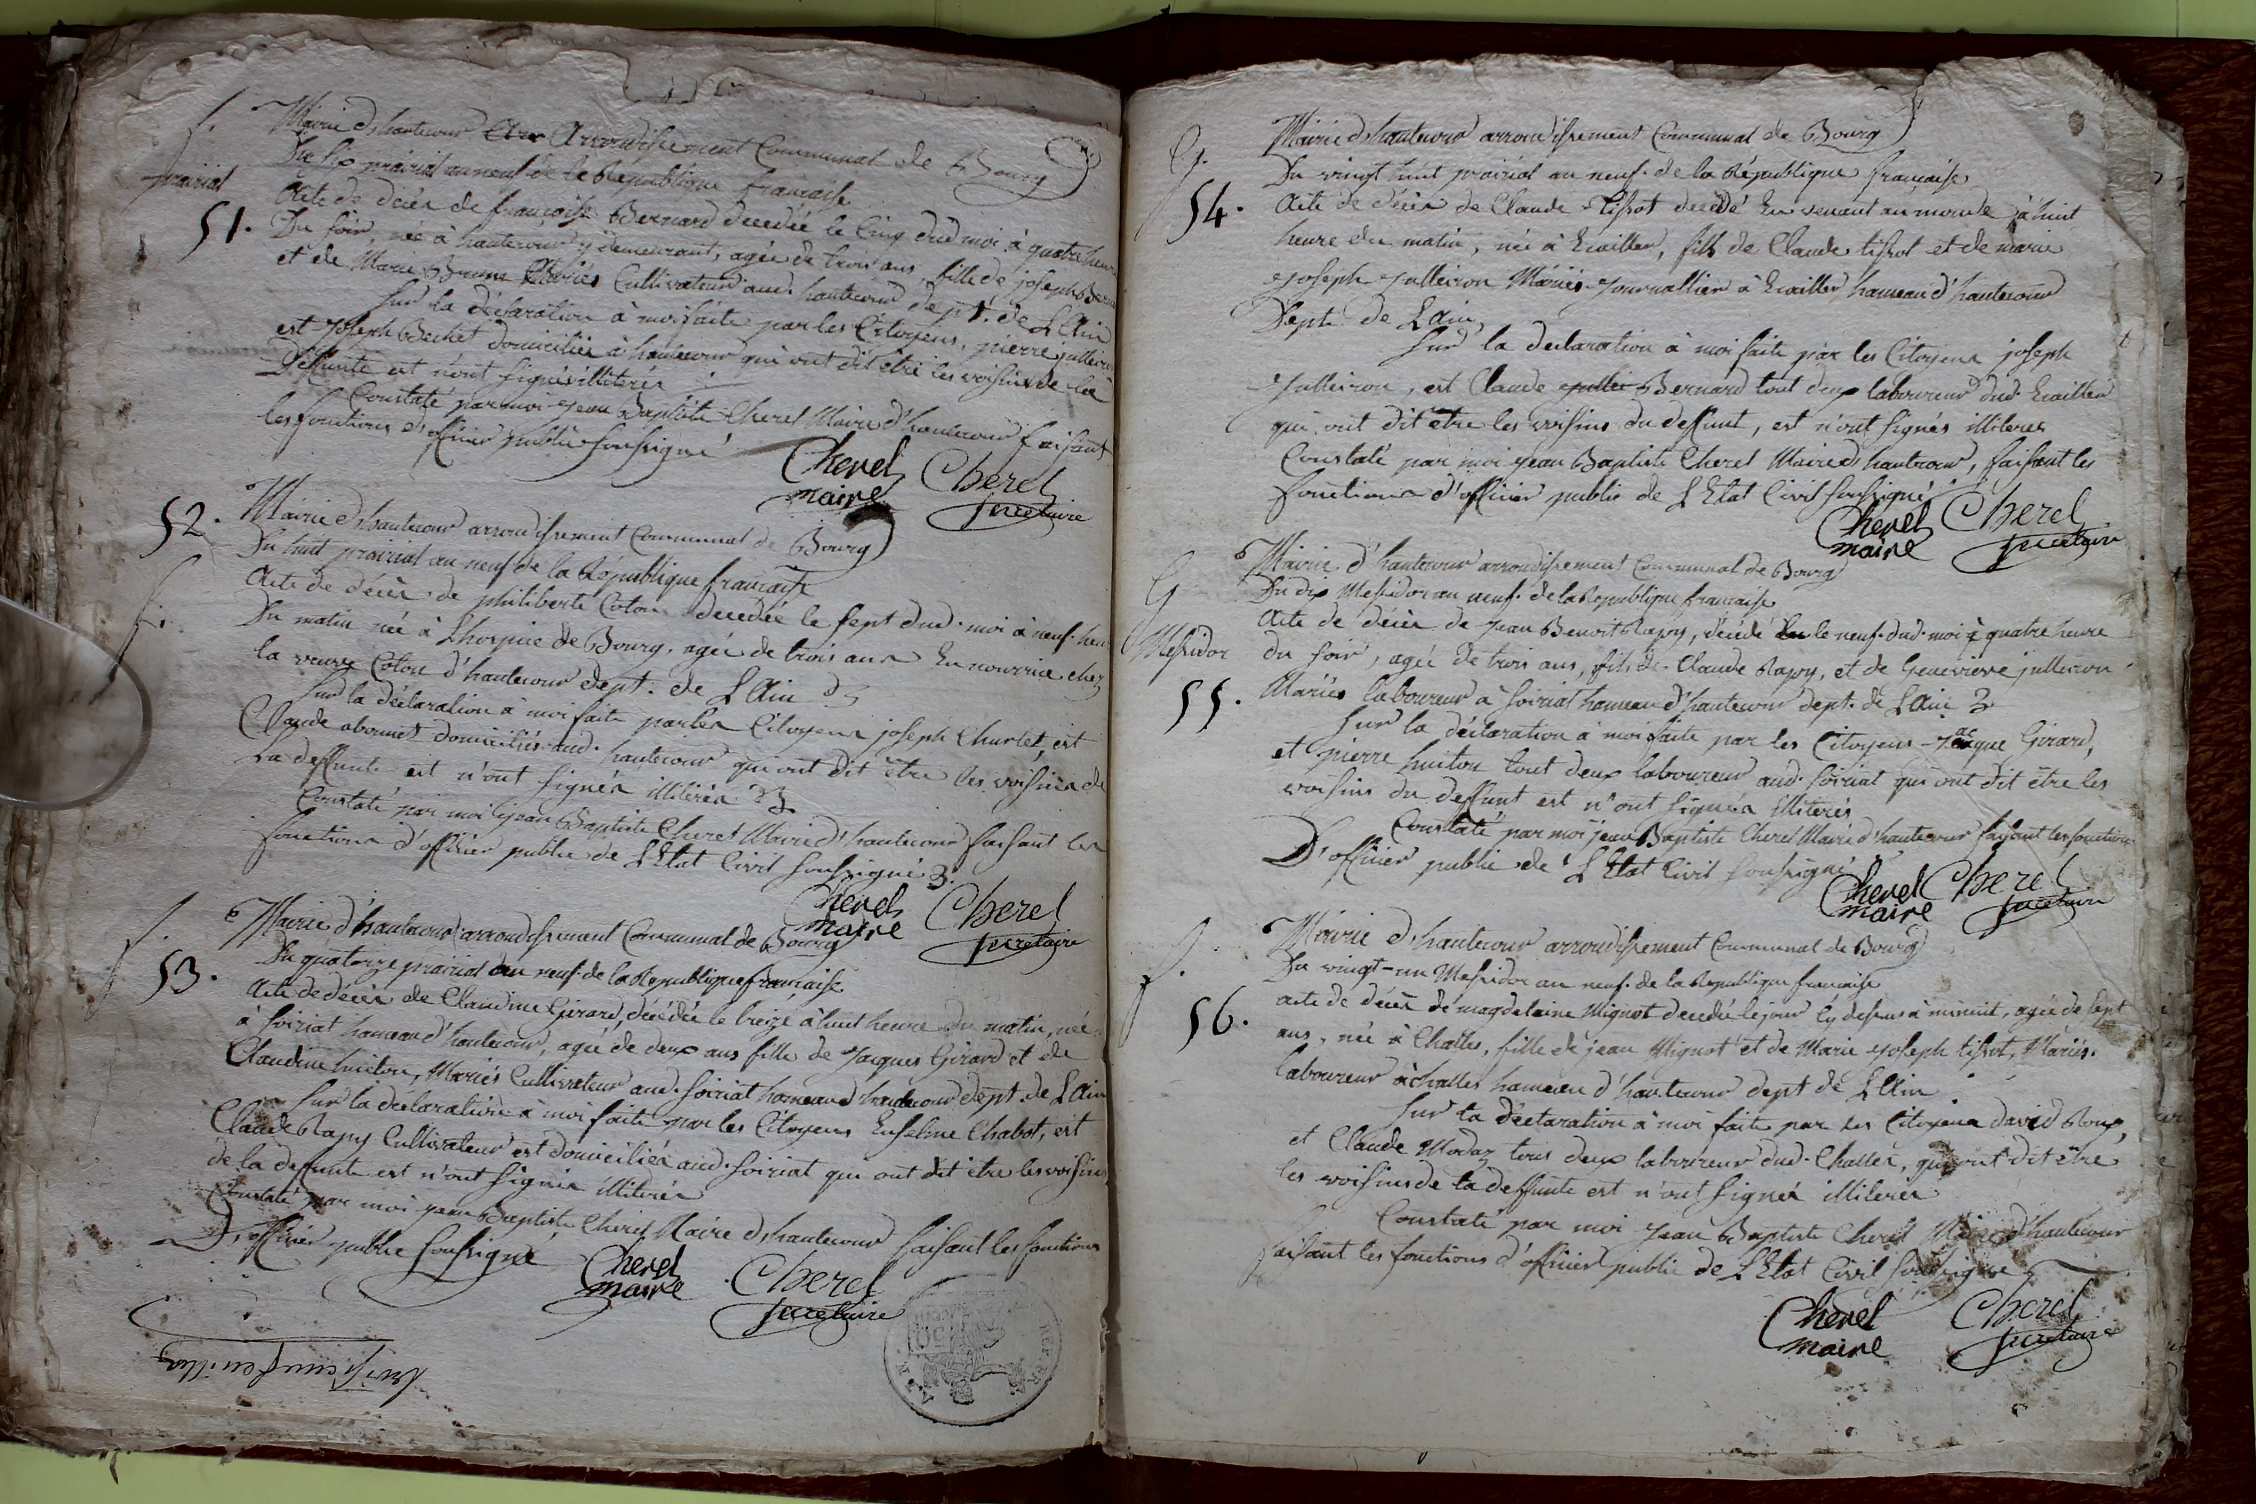 f.
Mairie d'hautecour Arrondissement Communal de Bourg
Du six prairial an neuf de la République française
prairial
Acte de décès de françoise Bernard decedée le Cinq dud moi à quatre heure
51.
Du soir, née à hautecour y demeurant, agée de trois ans, fille de joseph
et de Marie Mariés Cultivateur aud. hautecour dept. de L'Ain
Sur la déclaration à moi faite par les Citoyens, pierre
est Joseph Bechet domiciliés à hautecour qui ont dit être les voisins de la
Deffunte est n'ont signés illiterés
Constaté par moi Jean Baptiste Cherel Maire d'hautecour faisant
les fonctions d'officier public soussigné
Cherel Cherel
maire secretaire
52.
Mairie d'hautecour arrondissement Communal de Bourg
Du huit prairial an neuf de la République française
Acte de décès de philiberte Coton decedée le sept dud. moi à neuf heu
f.
Du matin née à Lhospice de Bourg, agée de trois ans En nourrice chez
la veuve Coton d'hautecour dept. de L'Ain
Sur la déclaration à moi faite par les Citoyens joseph Churlet, est
Claude abonnet domiciliés aud. hautecour qui ont dit être les voisins de
La deffunte est n'ont signés illiterés
Constaté par moi jean Baptiste Cherel Maire d'hautecour faisant les
fonctions d'officier public de L'Etat Civil soussigné
Cherel Cherel
maire secretaire
f.
Mairie d'hautecour arrondissement Communal de Bourg
53.
Du quatorze prairial an neuf de la République française
Acte de décès de Claudine Girard, décédée le treize à huit heure du matin, née
à soiriat hameau d'hautecour, agée de deux ans fille de Jacques Girard et de
Claudine huiton, Mariés Cultivateur aud. soiriat hameau d'hautecour dept. de L'Ain
Sur la declaration à moi faite par les Citoyens Enselme Chabot, est
Claude Rapy Cultivateur est domiciliés aud. soiriat qui ont dit être les voisins
de la defunte est n'ont signés illiterés
Constaté par moi jean Baptiste Cherel Maire d'hautecour faisant les fonctions
D'officier public soussigné
Cherel Cherel
maire secretaire
G.
Mairie d'hautecour arrondissement Communal de Bourg
Du vingt huit prairial an neuf de la République française
54.
Acte de décès de Claude Tissot decedé En venant au monde à huit
heure du matin, née à Euailles, fils de Claude tissot et de marie
Joseph Julleiron Mariés Journallier à Euailles hameau d'hautecour
Dept. de L'Ain,
Sur la declaration à moi faite par les Citoyens joseph
Julleiron, est Claude Bernard tout deux laboureur dud. Euailles
qui ont dit être les voisins du deffunt, est n'ont signés illiteres
Constaté par moi jean Baptiste Cherel Maire d'hautecour, faisant les
fonctions d'officier public de L'Etat Civil soussigné
Cherel Cherel
maire secretaire
G
Mairie d'hautecour arrondissement Communal de Bourg
Du dix Messidor an neuf de la République française
Messidor
Acte de décès de jean Benoit Rapy, décédé le neuf dud. moi à quatre heure
du soir, agée de trois ans, fils de Claude Rapy, et de Genevieve julleiron
55.
Mariés laboureur à soiriat hameau d'hautecour dept. de L'Ain
Sur la déclaration à moi faite par les Citoyens Jacque Girard,
et pierre huiton tout deux laboureur aud. soiriat qui ont dit être les
voisins du deffunt est n'ont signés illiterés
Constaté par moi jean Baptiste Cherel Maire d'hautecour faisant les fonctions
D'officier public de L'Etat Civil soussigné
Cherel Cherel
maire secretaire
f.
Mairie d'hautecour arrondissement Communal de Bourg
Du vingt-un Messidor an neuf de la République française
56.
acte de décès de magdelaine Mignot decedée le jour Cy dessus à minuit, agée de sept
ans, née à Challes, fille de jean Mignot et de Marie Joseph tissot, Mariés.
laboureur à challes hameau d'hautecour dept de L'Ain
Sur la déclaration à moi faite par les Citoyens david Roux,
et Claude Modaz tous deux laboureur dud. Challes, qui ont dit être
les voisins de la deffunte est n'ont signés illiteres
Constaté par moi Jean Baptiste Cherel Maire d'hautecour
faisant les fonctions d'officier public de L'Etat Civil soussigné
Cherel Cherel
maire secretaire